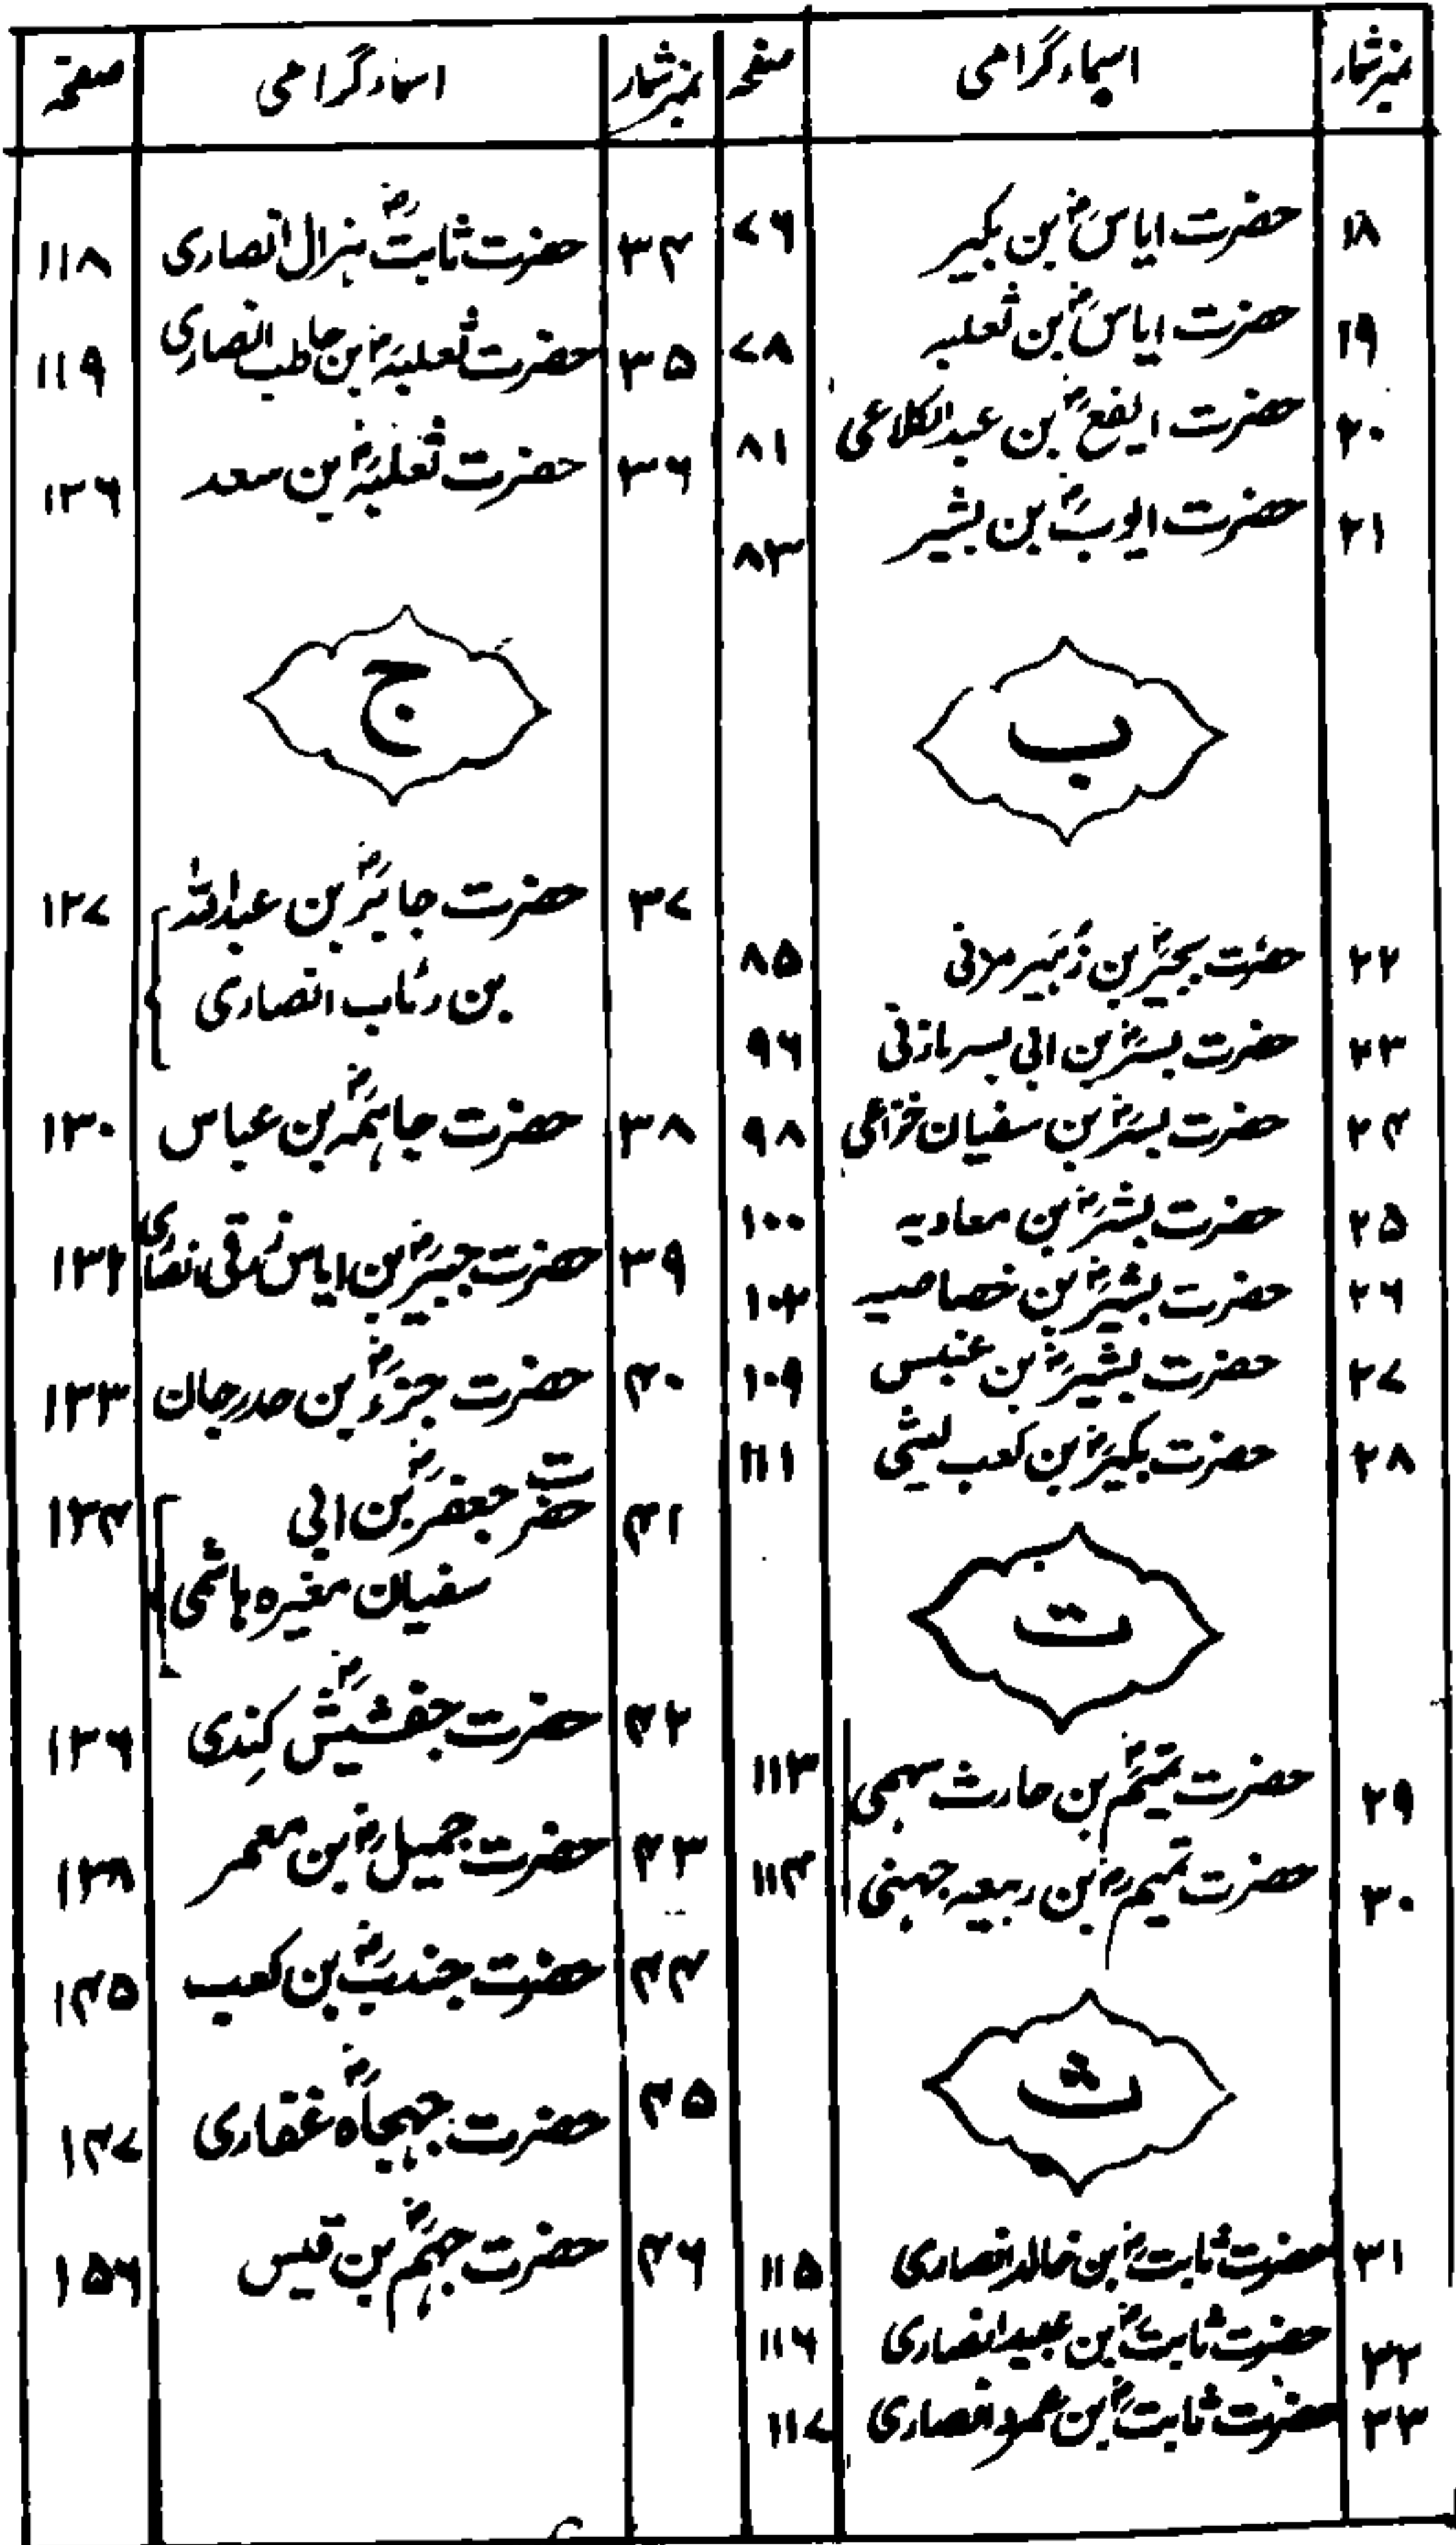 نمبرشمار اسماء گرامی صفحہ
۱۸ حضرت ایاسؓ بن بکیر ۷۶
۱۹ حضرت ایاسؓ بن ثعلبہ ۷۸
۲۰ حضرت ایفعؓ بن عبدالکلاعی ۸۱
۲۱ حضرت ایوبؓ بن بشیر ۸۳
ب
۲۲ حضرت بجیرؓ بن زُہَیر مزنی ۸۵
۲۳ حضرت بسرؓ بن ابی بسر مازنی ۹۶
۲۴ حضرت بسرؓ بن سفیان خزاعی ۹۸
۲۵ حضرت بشرؓ بن معاویہ ۱۰۰
۲۶ حضرت بشیرؓ بن خصاصیہ ۱۰۲
۲۷ حضرت بشیرؓ بن عنبس ۱۰۹
۲۸ حضرت بکیرؓ بن کعب لیثی ۱۱۱
ت
۲۹ حضرت تمیمؓ بن حارث سہمی ۱۱۳
۳۰ حضرت تمیمؓ بن ربیعہ جہنی ۱۱۴
ث
۳۱ حضرت ثابتؓ بن خالد انصاری ۱۱۵
۳۲ حضرت ثابتؓ بن عبید انصاری ۱۱۶
۳۳ حضرت ثابتؓ بن عمرو انصاری ۱۱۷
نمبرشمار اسماء گرامی صفحہ
۳۴ حضرت ثابتؓ ہنرال انصاری ۱۱۸
۳۵ حضرت ثعلبہؓ بن حاطب انصاری ۱۱۹
۳۶ حضرت ثعلبہؓ بن سعد ۱۲۶
ج
۳۷ حضرت جابرؓ بن عبداللہ ۱۲۷
بن رئاب انصاری
۳۸ حضرت جاہمہؓ بن عباس ۱۳۰
۳۹ حضرت جبیرؓ بن ایاس زُرقی انصاری ۱۳۲
۴۰ حضرت جزءؓ بن حدرجان ۱۳۳
۴۱ حضرت جعفرؓ بن ابی ۱۳۴
سفیان مغیرہ ہاشمی
۴۲ حضرت جفشیشؓ کِندی ۱۳۶
۴۳ حضرت جمیلؓ بن معمر ۱۳۸
۴۴ حضرت جندبؓ بن کعب ۱۴۵
۴۵ حضرت جہجاہؓ غفاری ۱۴۷
۴۶ حضرت جہمؓ بن قیس ۱۵۶